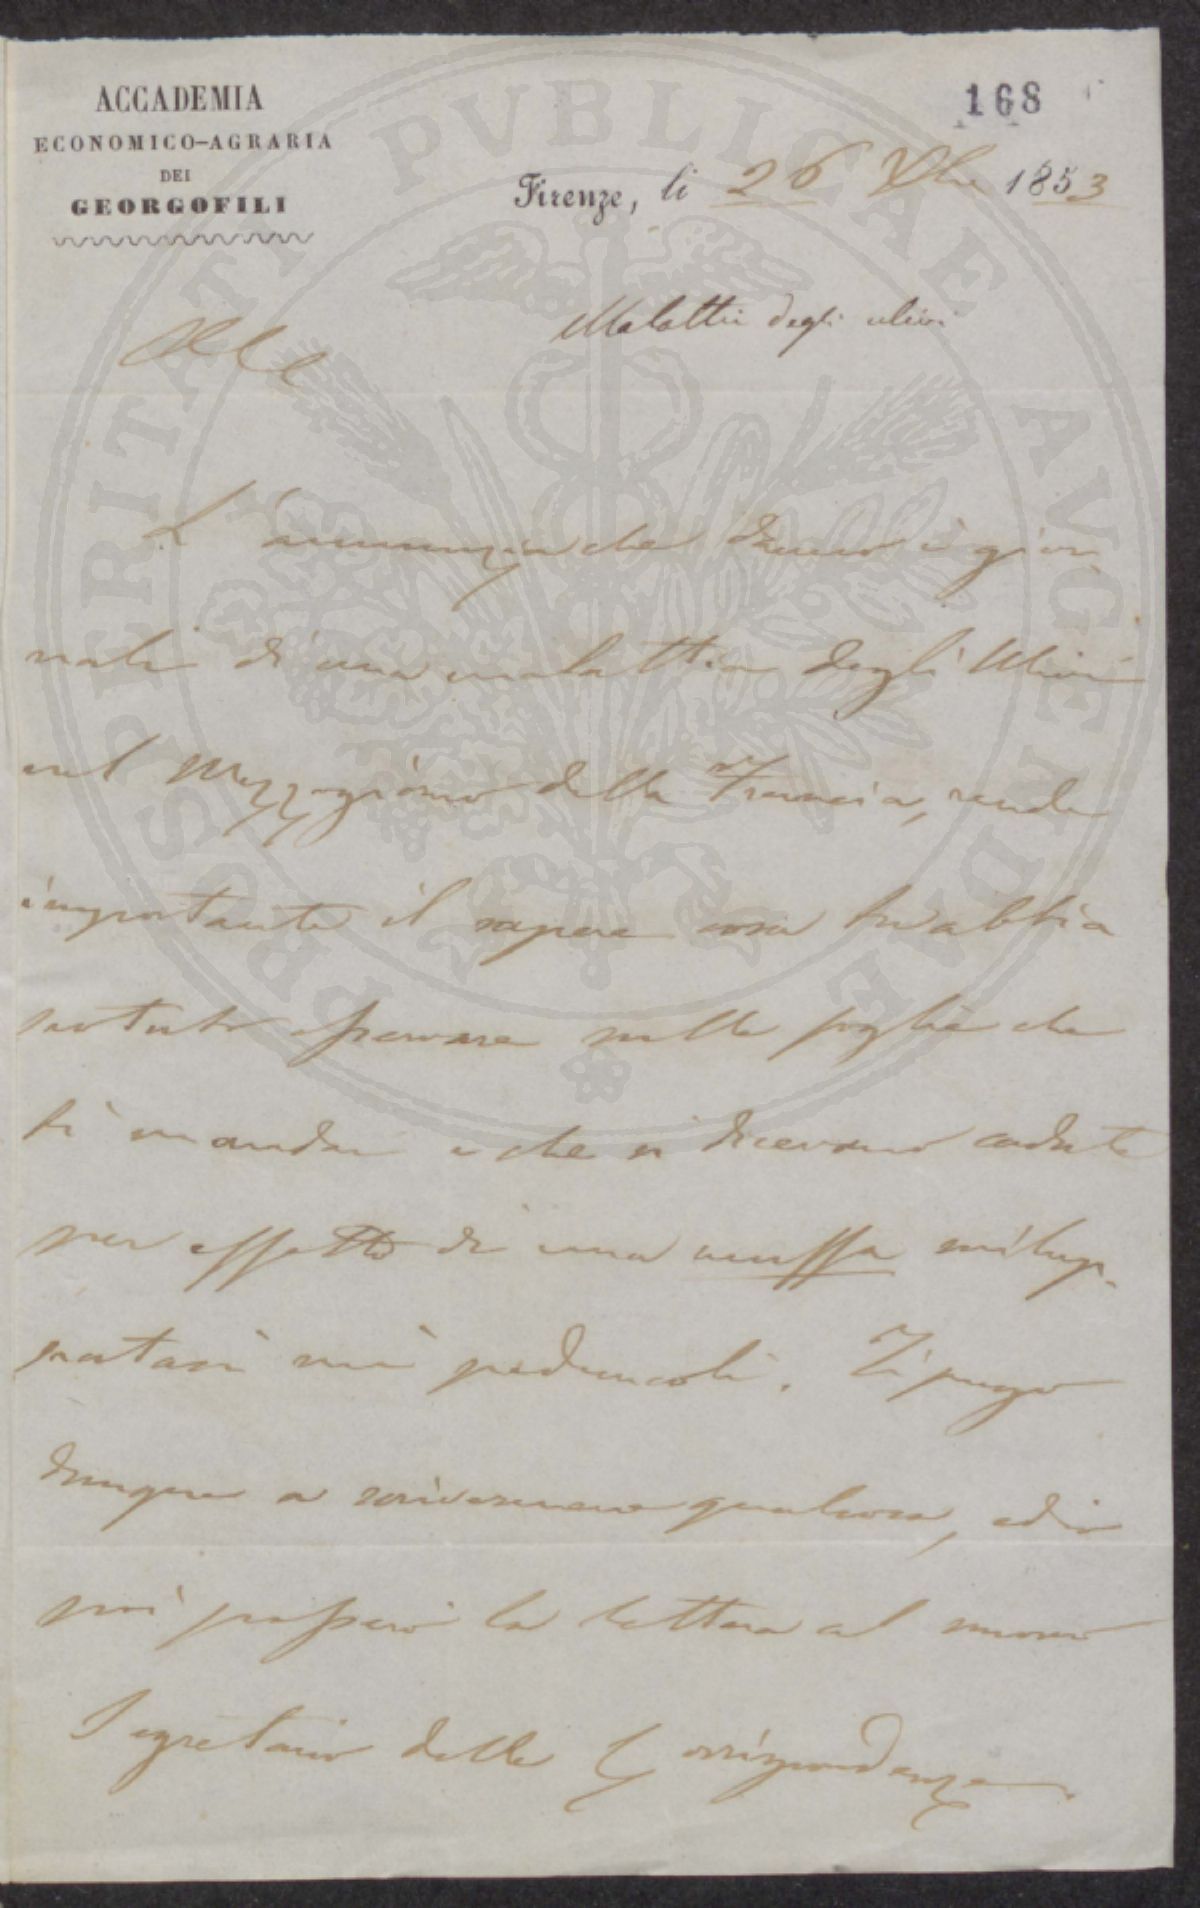 ACCADEMIA
ECONOMICO-AGRARIA
DEI
GEORGOFILI
168
Firenze, li 26 Xbre 1853
Malattia degli ulivi
L'annunzio che danno i gior-
nali di una malattia degli Ulivi
nel Mezzogiorno della Francia, rende
importante il sapere cosa tu abbia
potuto osservare nelle foglie che
ti mandai e che si dicevano cadute
per effetto di una muffa svilup-
patasi nei peduncoli. Ti prego
dunque a scrivermene qualcosa, ed io
poi passerò la lettera al nuovo
Segretario delle Corrispondenze.
PROSPERITATI PVBLICAE AVGENDAE